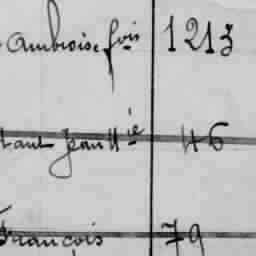 Ambroise fois 1213
Jean Mie 46
François 79